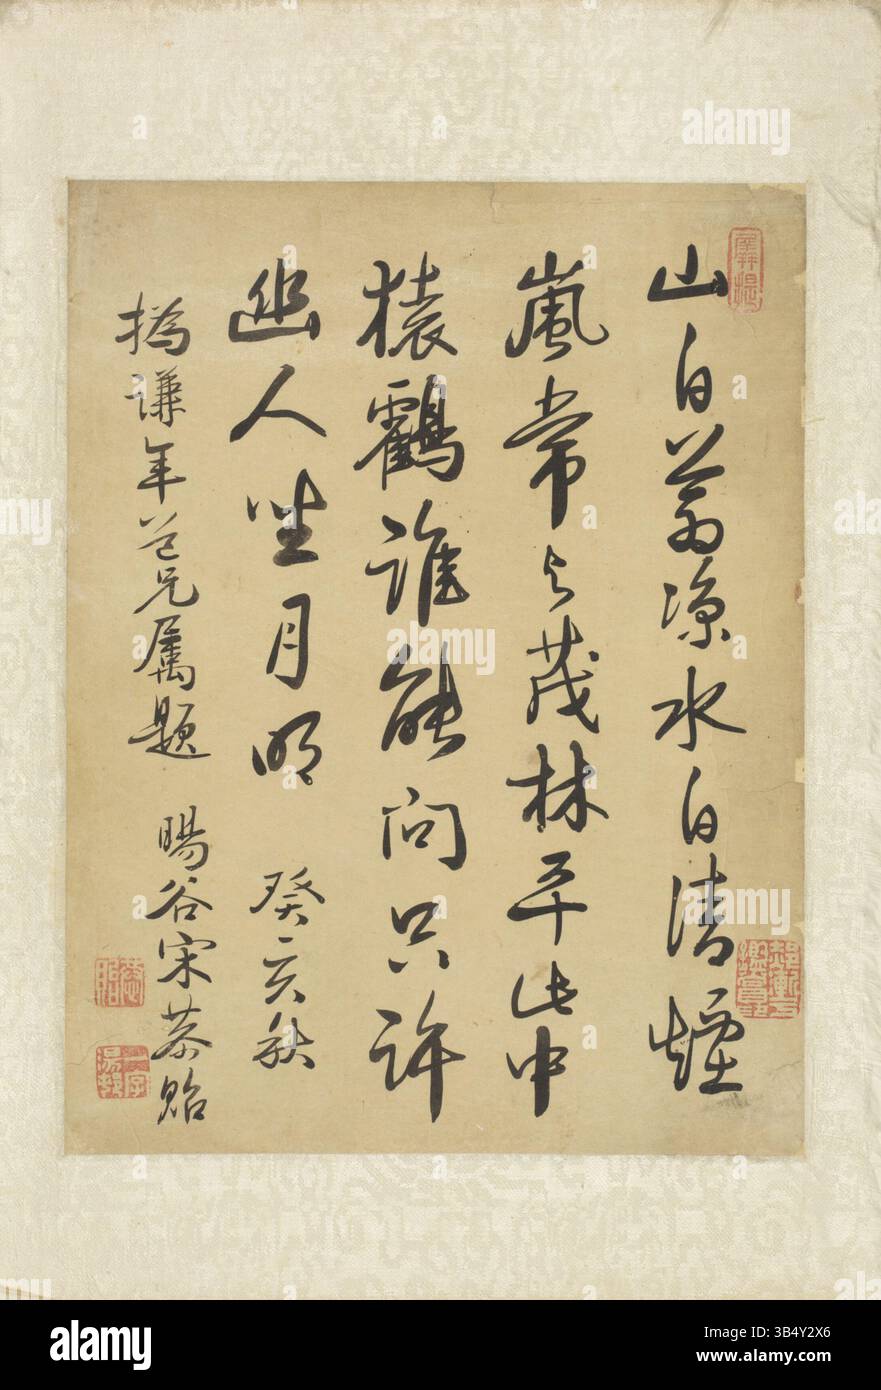 山自蒼凉水自清煙
嵐常与茂林平此中
猿鶴誰能問只許
幽人坐月明 癸亥秋
撝謙年兄屬題 暘谷宋恭貽
恭貽
alamy
Image ID: 3B4Y2X6
www.alamy.com